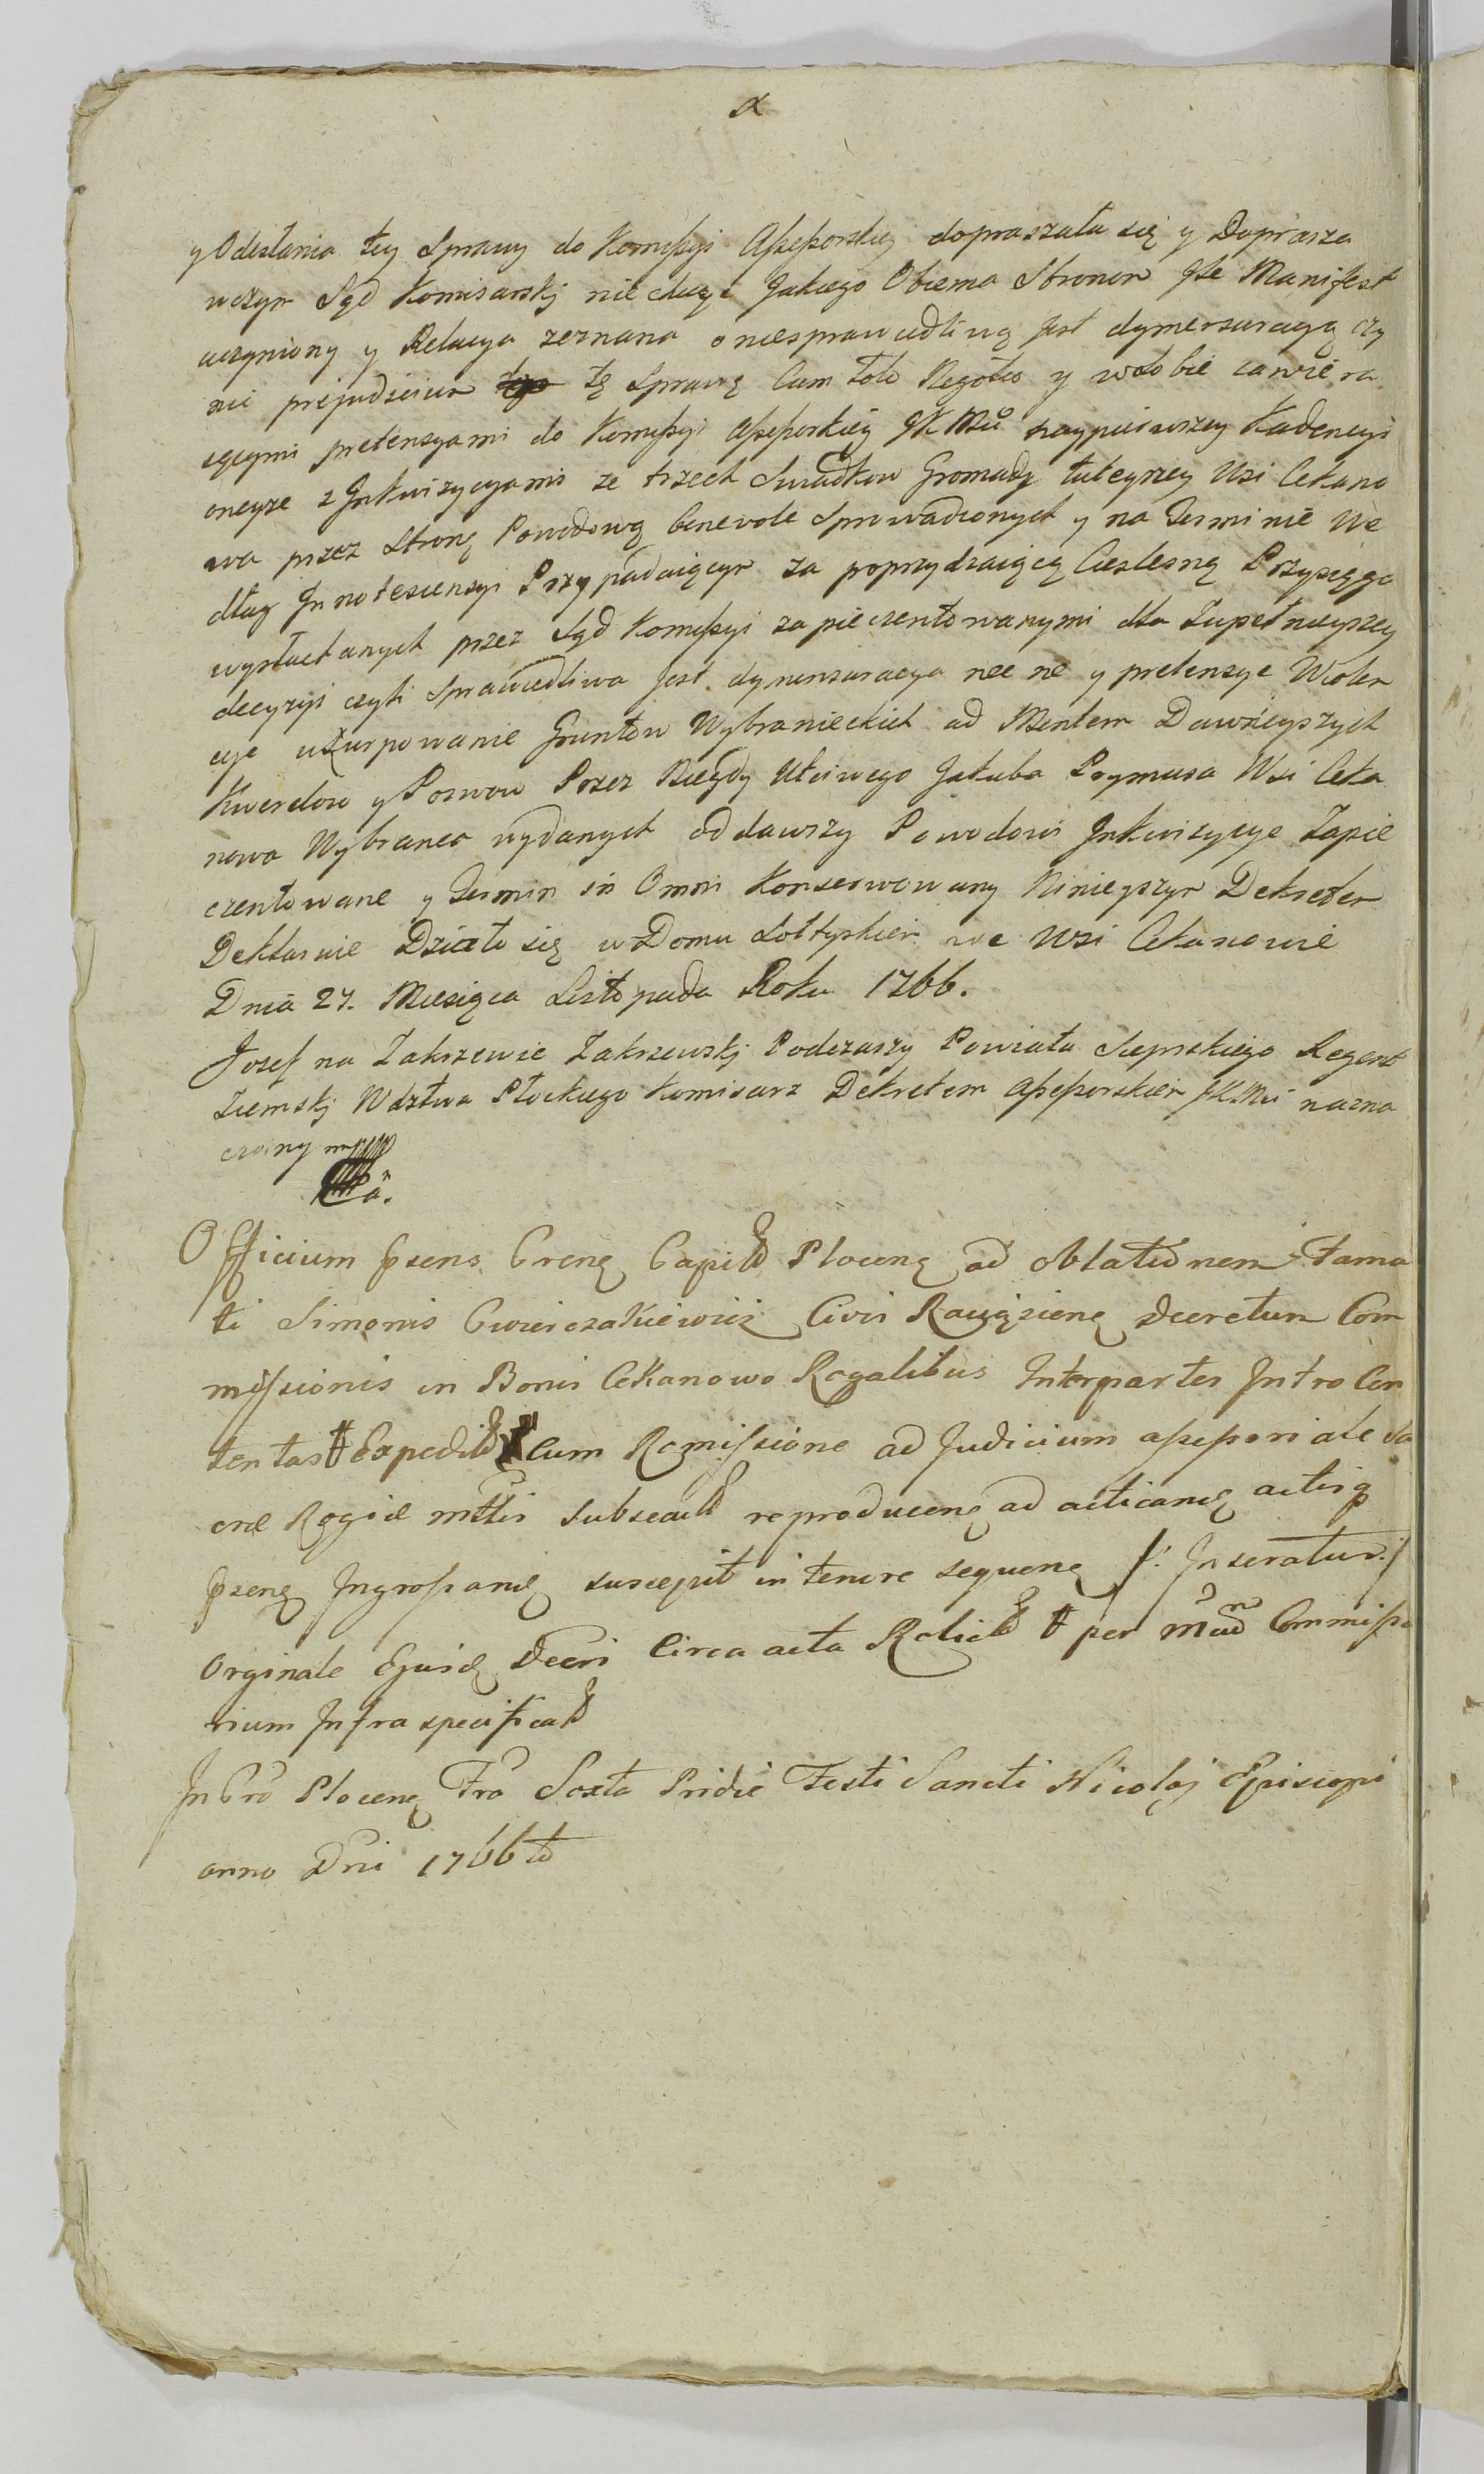 y Odesłania tey Sprawy do Komissyi Assessorskiey dopraszała się y Doprasza
wczym Sąd Komisarski nie chcąc Jakiego Obiema Stronom Ile Manifest
uczyniony y Relacya zeznana o niesprawiedliwą jest dymensuracyą czy
nić prejudicium tę Sprawę Cum toto Negotio y wsobie zawiera
iącymi pretensyami do Komissyi Assessorskiey JKMci naypierwszey Kadencyi
oneyze z Inkwizycyami ze trzech Swiadkow Gromady tuteyszey Wsi Cekano
wa przez Stronę Powodową benevole Sprowadzonych y na Terminie We
dług Innotescensyi Przypadaiącym za poprzydzaiącą Cielesną Przysięgą
wysłuchanych przez Sąd Komissyi zapieczentowanymi dla Zupełnieyszey
decyzyi czyli Sprawiedliwa Jest dymensuracya nec ne y pretensye Wiolen
cye uzurpowanie Gruntow Wybranieckich ad Mentem Dawnieyszych
Kwerelow y Pozwow Przez Niegdy Uczciwego Jakuba Prymusa Wsi Ceka
nowa Wybranca wydanych oddawszy Powodowi Inkwizycye Zapie
czentowane y Termin in Omni Konserwowany Ninieyszym Dekretem
Deklaruie Działo się w Domu Sołtyskim we Wsi Cekanowie
Dnia 27. Miesiąca Listopada Roku 1766.
Josef na Zakrzewie Zakrzewski Podczaszy Powiatu Sieprskiego Regent
Ziemski Wdztwa Płockiego Komisarz Dekretem Assessorskim JKMci nazna
czony mp
Officium psens Crense Capitle Plocense ad oblationem Fama
ti Simonis Cwierczakiewicz Civis Raciąziens Decretum Com
missionis in Bonis Cekanowo Regalibus Inter partes Intro Con
tentas Expedit Cum Remissione ad Judicium assessoriale Sa
cræ Regiæ mttis subsecut reproducen ad acticand actisq
psen Ingrossand suscepit in tenore sequen /: Inseratur :/
Orginale Ejusd Decri Circa acta Relict per Mcum Commissa
rium Infra specificat
In Cro Plocen Fra Sexta Pridie Festi Sancti Nicolaj Episcopi
anno Dni 1766to